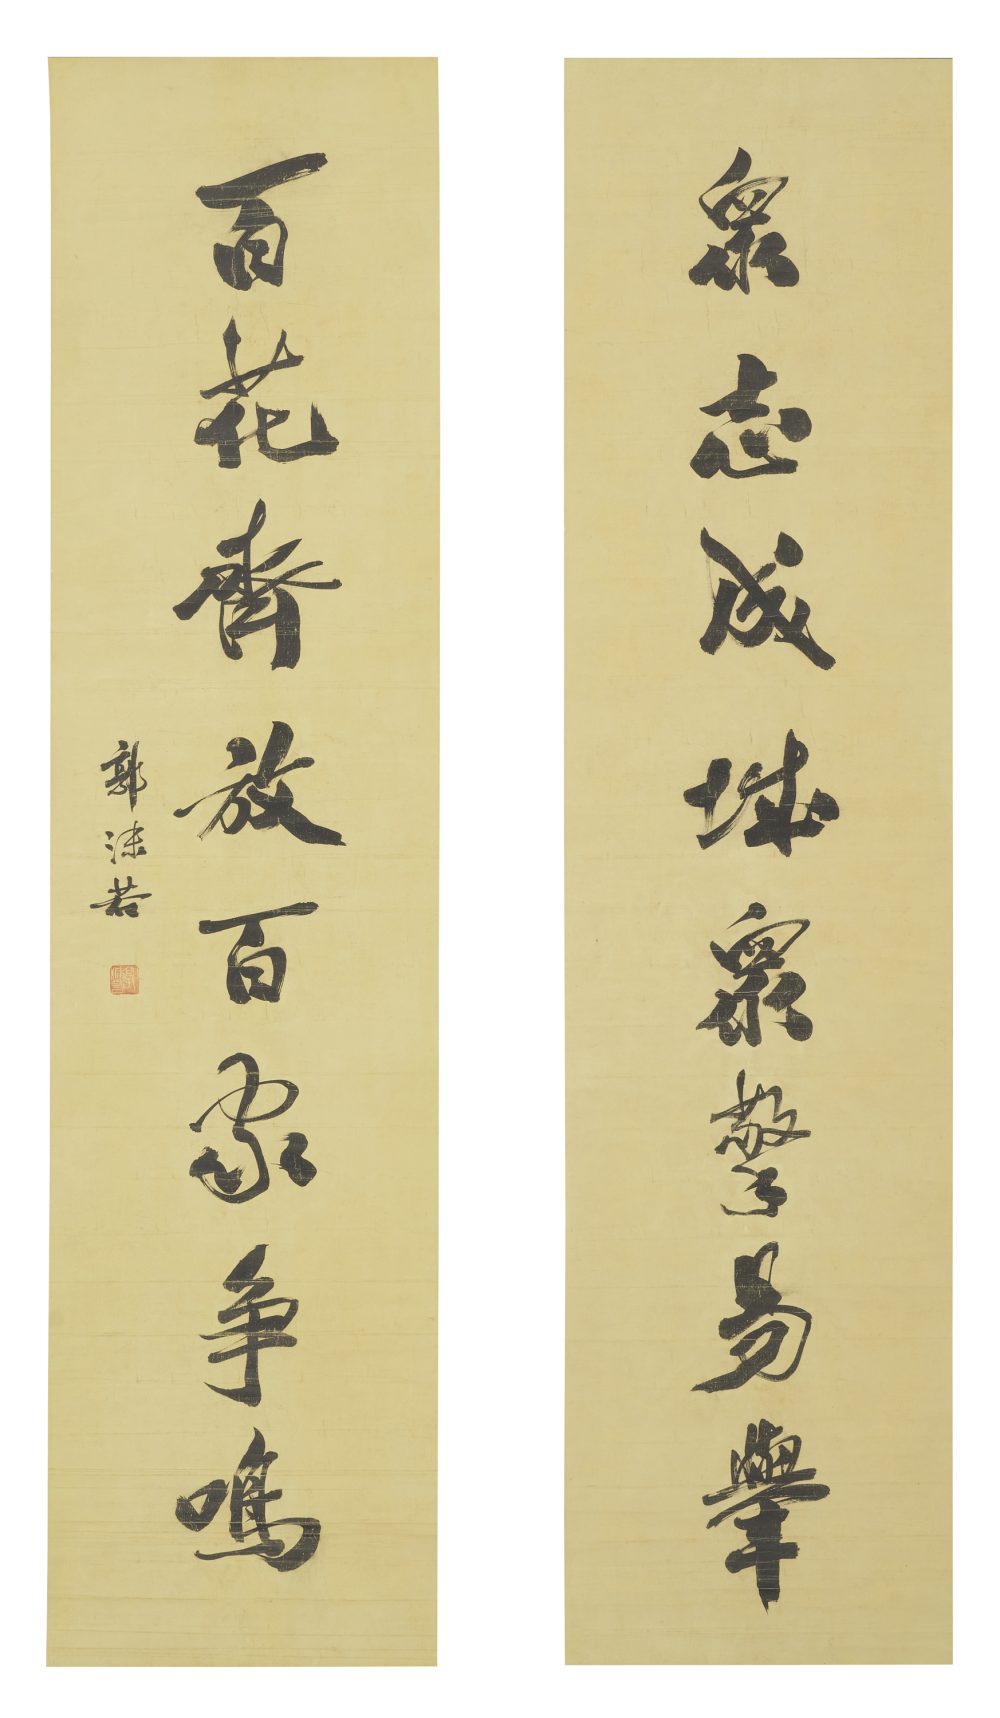 眾志成城眾擎易舉
百花齊放百家爭鳴
郭沫若